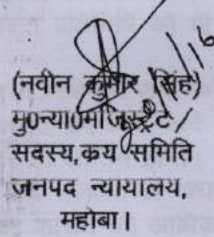 (नवीन कुमार सिंह)
मु0न्या0मजिस्ट्रेट/
सदस्य,कय समिति
जनपद न्यायालय,
महोबा।